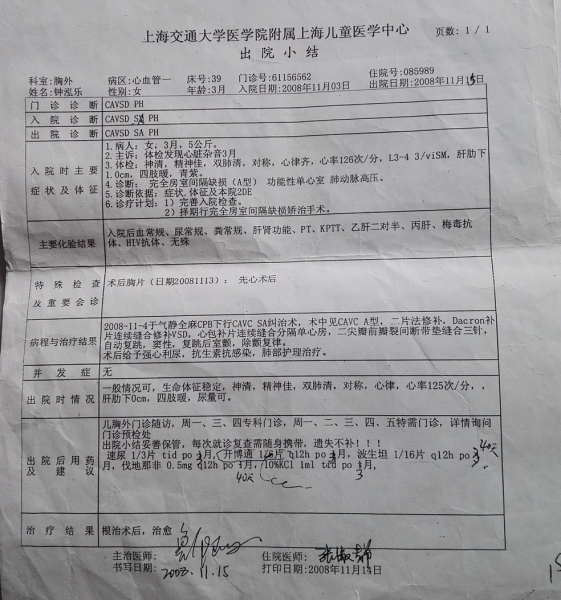 上海交通大学医学院附属上海儿童医学中心
页数: 1 / 1
出 院 小 结
科室:胸外 病区:心血管一 床号:39 门诊号:61156562 住院号:085989
姓名:钟泓乐 性别:女 年龄:3月 入院日期:2008年11月03日 出院日期:2008年11月15日
门 诊 诊 断 CAVSD PH
入 院 诊 断 CAVSD SA PH
出 院 诊 断 CAVSD SA PH
入 院 时 主 要 症 状 及 体 征
1.病人: 女, 3月, 5公斤。
2.主诉: 体检发现心脏杂音3月
3.体检: 神清, 精神佳, 双肺清, 对称, 心律齐, 心率126次/分, L3-4 3/viSM, 肝肋下
1.0cm, 四肢暖, 青紫。
4.诊断: 完全房室间隔缺损 (A型) 功能性单心室 肺动脉高压。
5.诊断依据: 症状.体征及本院2DE
6.诊疗计划: 1) 完善入院检查。
2) 择期行完全房室间隔缺损矫治手术。
主要化验结果
入院后血常规、尿常规、粪常规、肝肾功能、PT、KPTT、乙肝二对半、丙肝、梅毒抗
体、HIV抗体、无殊
特 殊 检 查 及 重 要 会 诊
术后胸片 (日期20081113) : 先心术后
病程与治疗结果
2008-11-4于气静全麻CPB下行CAVC SA纠治术, 术中见CAVC A型, 二片法修补, Dacron补
片连续缝合修补VSD, 心包补片连续缝合分隔单心房, 二尖瓣前瓣裂间断带垫缝合三针,
自动复跳, 窦性, 复跳后室颤, 除颤复律。
术后给予强心利尿, 抗生素抗感染, 肺部护理治疗。
并 发 症 无
出 院 时 情 况
一般情况可, 生命体征稳定, 神清, 精神佳, 双肺清, 对称, 心律, 心率125次/分, ,
肝肋下0cm, 四肢暖, 尿量可。
出 院 后 用 药 及 建 议
儿胸外门诊随访, 周一、三、四专科门诊, 周一、二、三、四、五特需门诊, 详情询问
门诊预检处
出院小结妥善保管, 每次就诊复查需随身携带, 遗失不补!!!
速尿 1/3片 tid po 3月, 开博通 1/6片 q12h po 3月, 波生坦 1/16片 q12h po 40天
月, 伐地那非 0.5mg q12h po 月, 10%KCl 1ml tid po 3月,
40天
治 疗 结 果 根治术后, 治愈
主治医师: 住院医师:
书写日期: 2008.11.15 打印日期:2008年11月14日